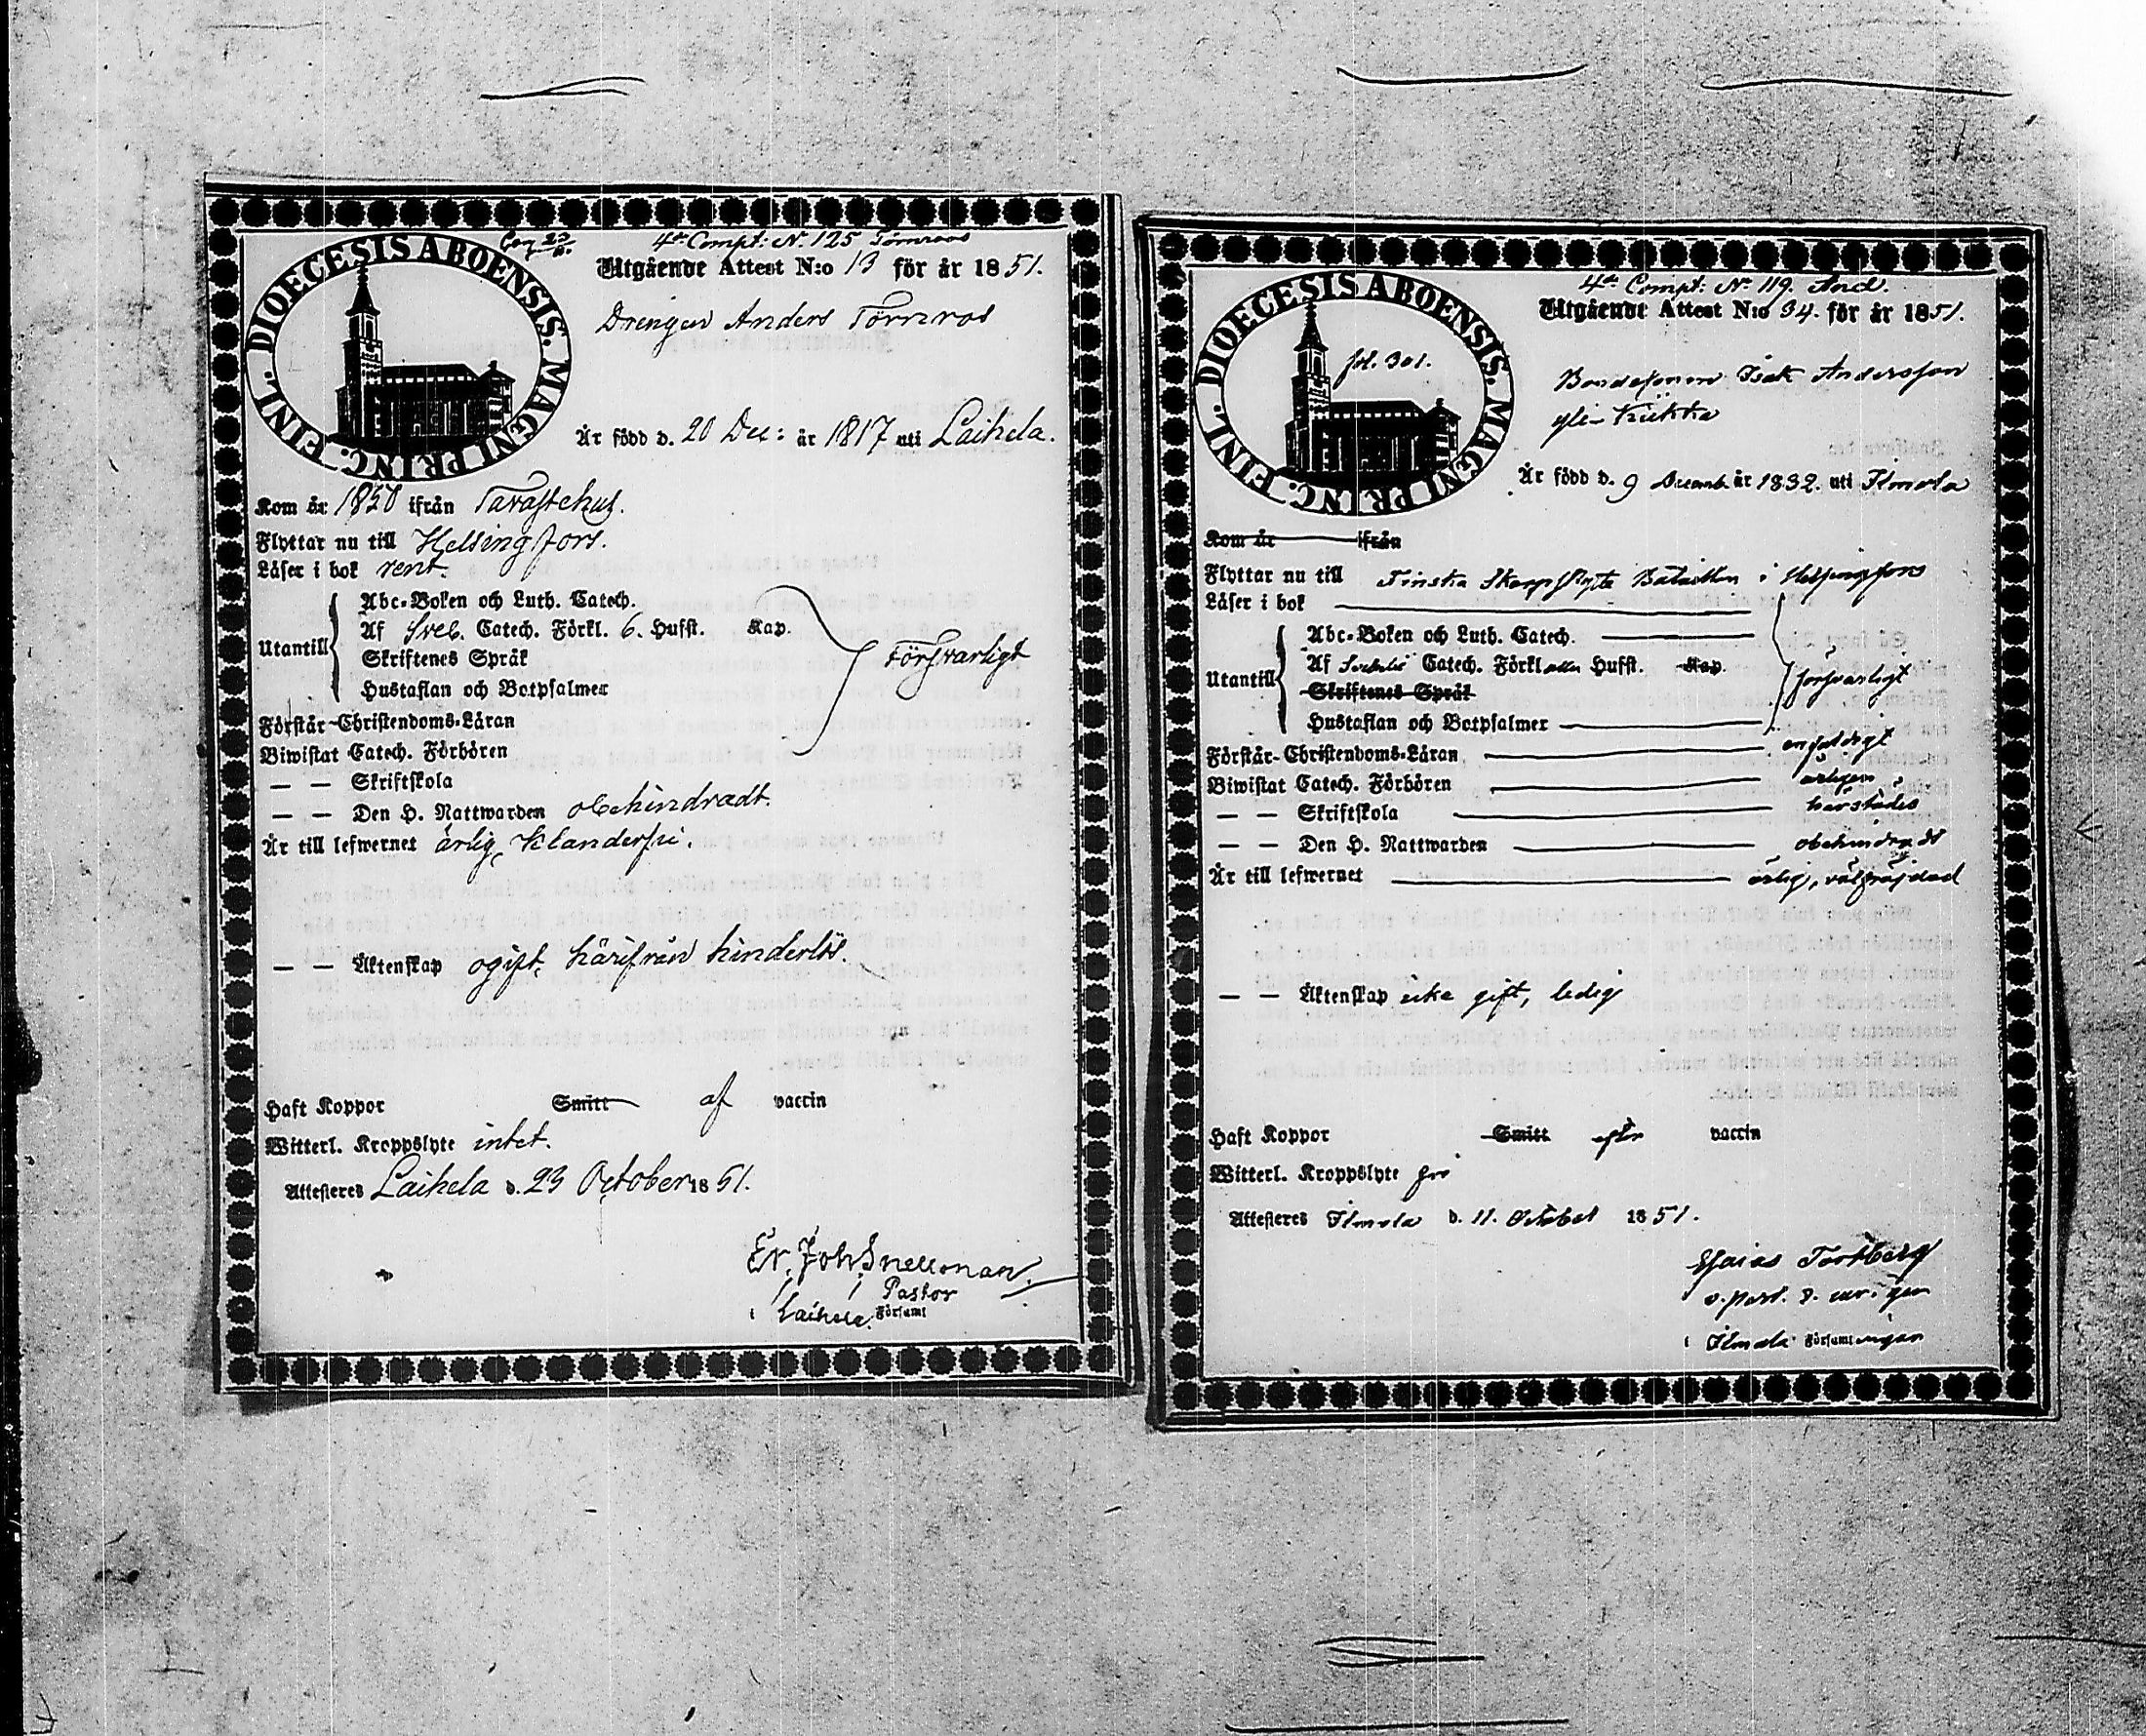 DIOECESIS ABOENSIS. MAGNI PRINC. FINL.
4de Compt: N. 125 Törnroos
Utgående Attest N:o 13 för år 1851.
Drengen Anders Törnros
Är född d. 20 Dec: år 1817 uti Laihela.
Kom år 1850 ifrån Tavastehus.
Flyttar nu till Helsingfors.
Läser i bok rent.
Utantill
Abc-Boken och Luth. Catech.
Af Sveb. Catech. Förkl. 6. Hufst. Kap.
Skriftenes Språk
Hustaflan och Botpsalmer
försvarligt
Förstår Christendoms-Läran
Biwistat Catech. Förhören
— — Skriftskola
— — Den H. Nattwarden obehindradt.
Är till lefwernet ärlig, klanderfri.
— — Äktenskap ogift, härifrån hinderlös.
Haft Koppor Smitt af vaccin
Witterl. Kroppslyte intet.
Attesteras Laihela d. 23 October 1851.
Er. Joh. Snellman.
Pastor
i Laihela Församl
DIOECESIS ABOENSIS. MAGNI PRINC. FINL.
fol. 301.
4de Compt: No 119. And.
Utgående Attest No 94. för år 1851.
Bondesonen Isak Andersson
Yli-
Är född d. 9 Decemb. år 1832. uti Ilmola
Kom år ifrån
Flyttar nu till Finska Skarpskytte Bataillon i Helsingfors
Läser i bok
Utantill
Abc-Boken och Luth. Catech.
Af Svebelii Catech. Förkl alla Hufst. Kap.
Skriftenes Språk
Hustaflan och Botpsalmer
försvarligt
Förstår Christendoms-Läran enfaldigt
Biwistat Catech. Förhören årligen
— — Skriftskola härstädes
— — Den H. Nattwarden obehindradt
Är till lefwernet ärlig, välfräjdad
— — Äktenskap icke gift, ledig
Haft Koppor Smitt efter vaccin
Witterl. Kroppslyte fri
Attesteras Ilmola d. 11. October 1851.
Esaias
v. past.
i Ilmola Församlingen